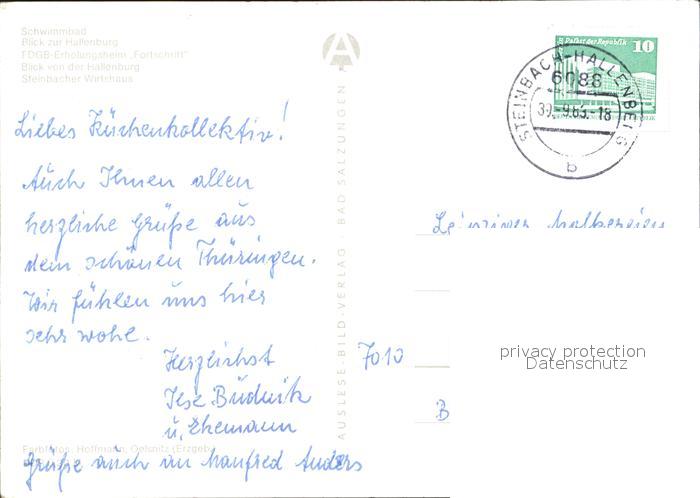 Schwimmbad
Blick zur Hallenburg
FDGB-Erholungsheim „Fortschritt"
Blick von der Hallenburg
Steinbacher Wirtshaus
Palast der Republik 10
STEINBACH-HALLENBERG
6088
-9.83.-18
b
Liebes Küchenkollektiv!
Auch Ihnen allen
herzliche Grüße aus
dem schönen Thüringen.
Wir fühlen uns hier
sehr wohl.
Herzlichst
Ilse Büdnik
u. Ehemann
Grüße auch an Manfred Anders
Farbfotos: Hoffmann, Oelsnitz (Erzgeb.)
AUSLESE-BILD-VERLAG BAD SALZUNGEN
Leipziger
7010
B
privacy protection
Datenschutz